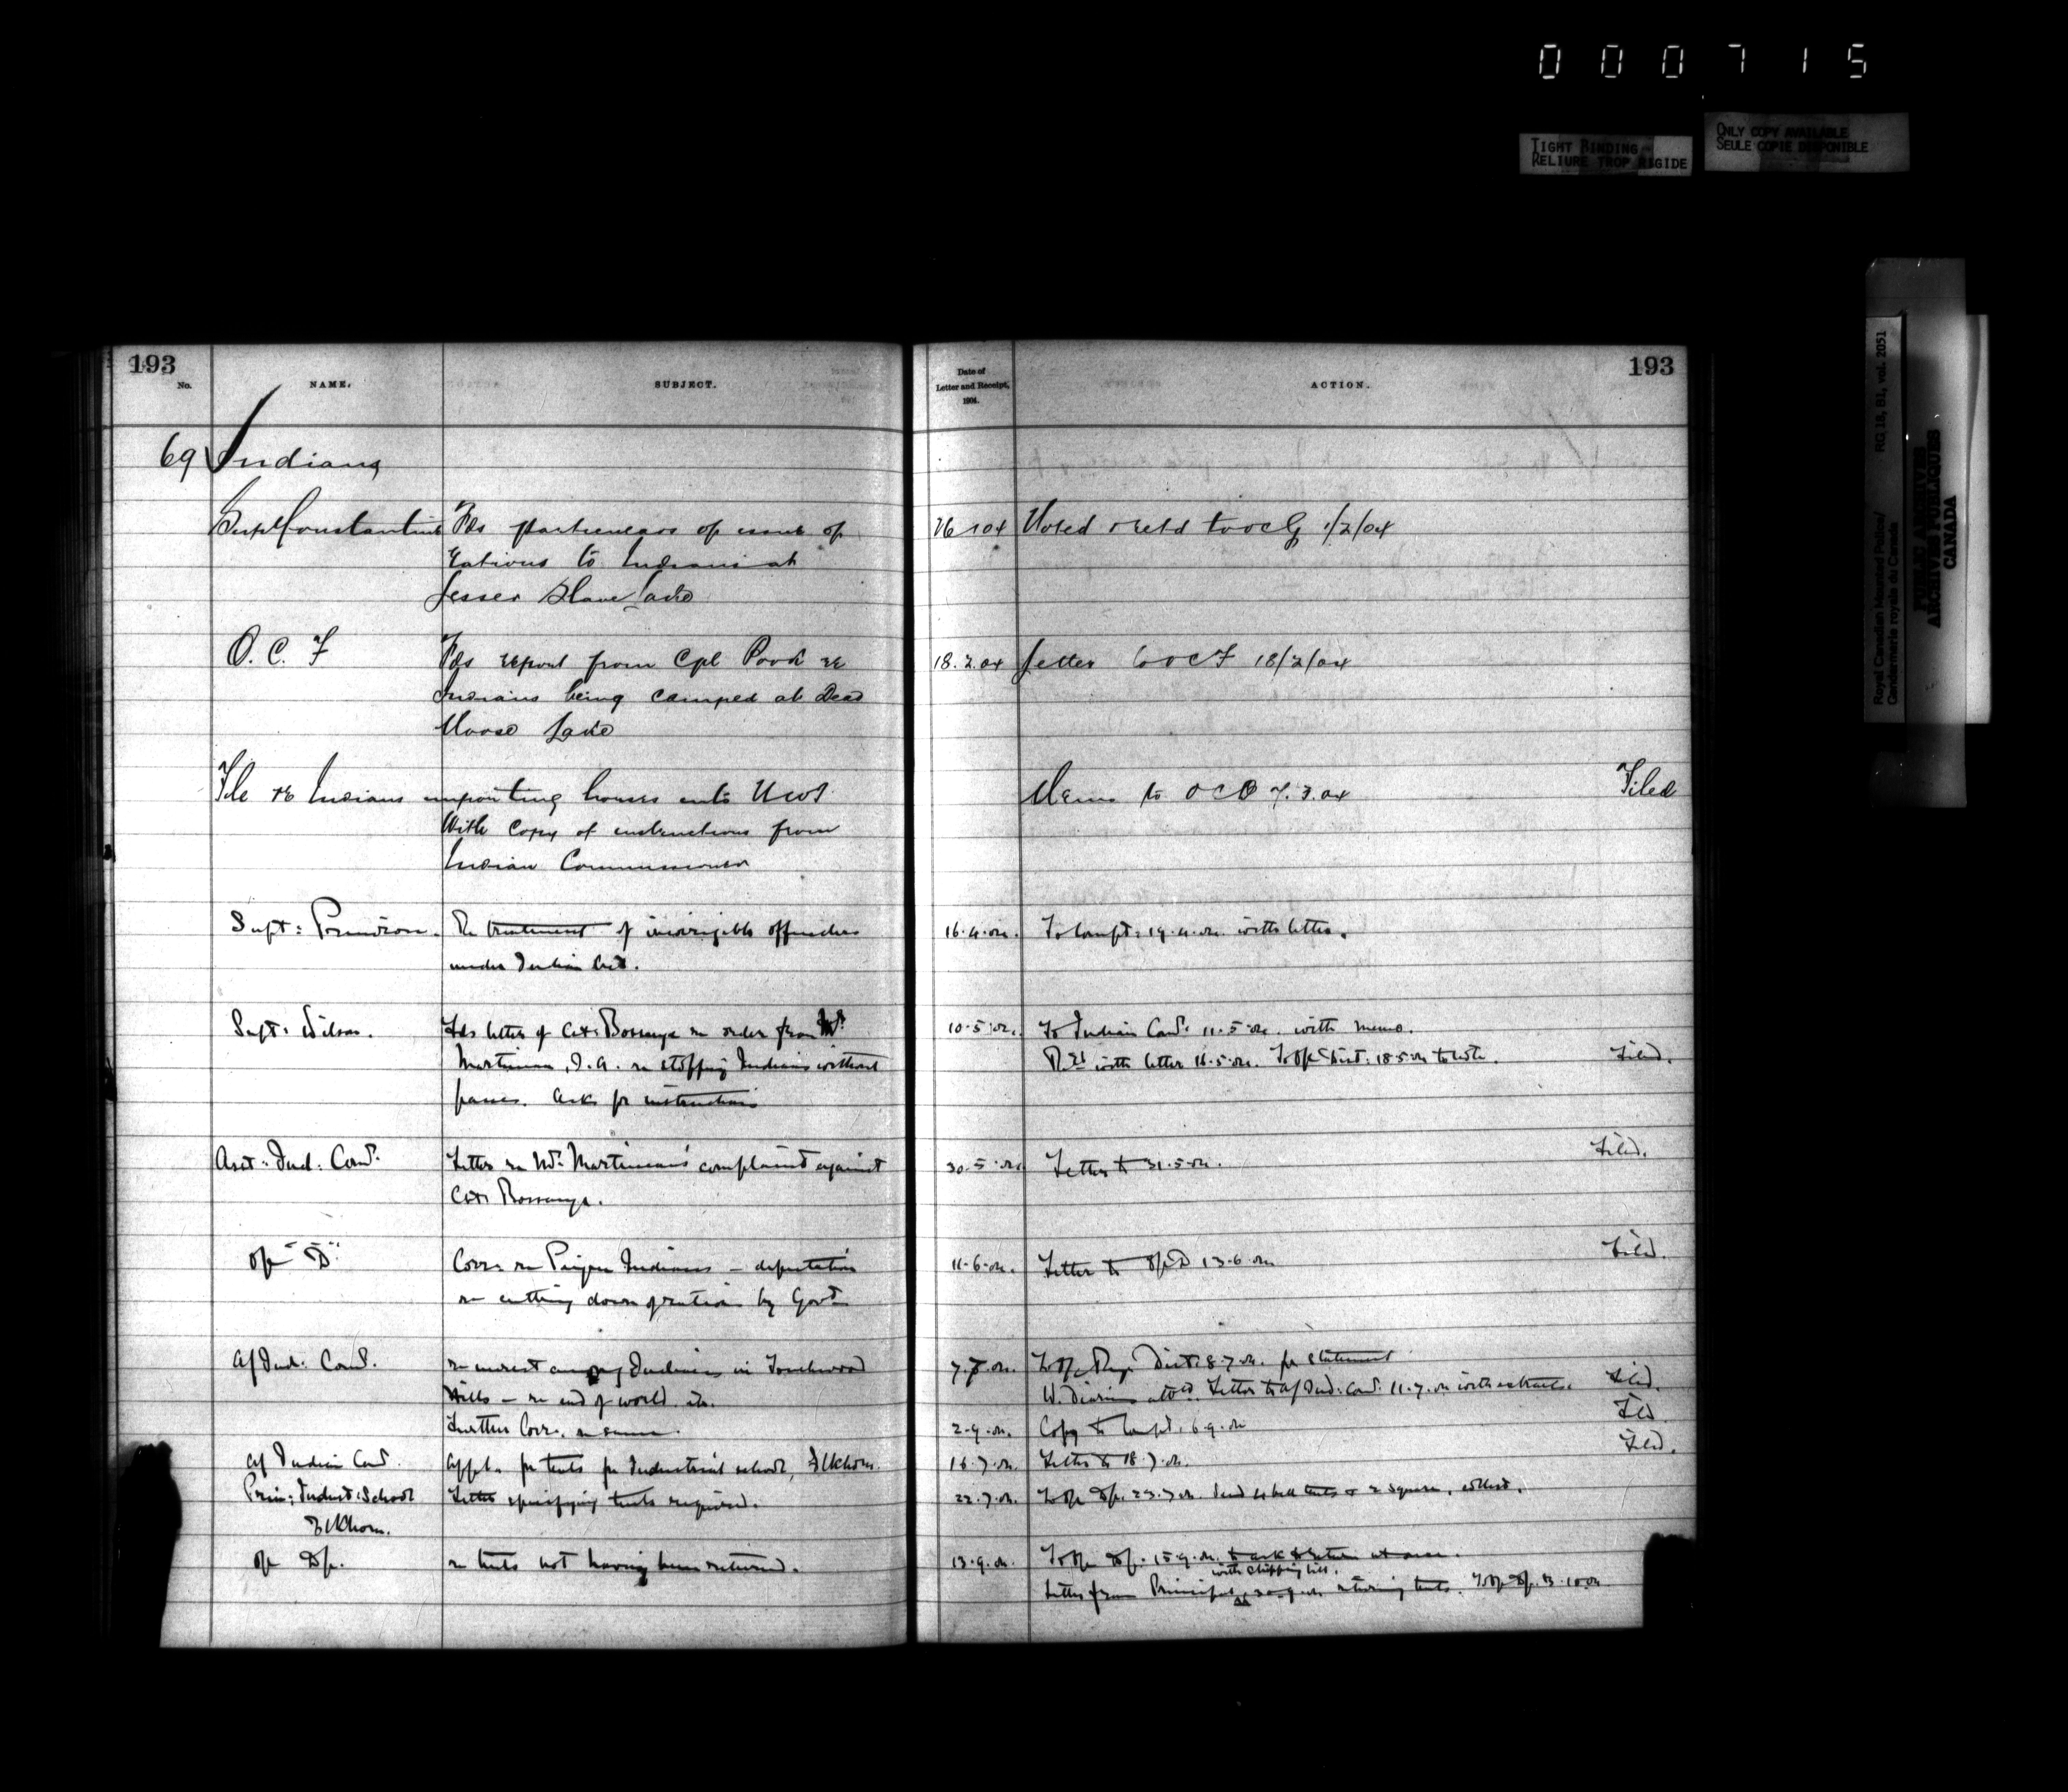 000715
TIGHT BINDING
RELIURE TROP RIGIDE
ONLY COPY AVAILABLE
SEULE COPIE DISPONIBLE
Royal Canadian Mounted Police/ RG 18, B1, vol. 2051
Gendarmerie royale du Canada
PUBLIC ARCHIVES
ARCHIVES PUBLIQUES
CANADA
193
No. NAME. SUBJECT.
Date of
Letter and Receipt,
1904.
ACTION.
193
69 Indians
Supt Constantine Fds particulars of issue of 26 1 04 Noted & retd to O C G 1/2/04
rations to Indians at
Lesser Slave Lake
O. C. F Fds report from Cpl Pook re 18.2.04 Letter to O C F 18/2/04
Indians being camped at Dead
Moose Lake
File re Indians importing horses into NWT Memo to O C 7.3.04 Filed
With copy of instructions from
Indian Commissioner
Supt: Primrose. Re treatment of incorrigible offenders 16.4.04. To Compt: 19.4.04. with letter.
under Indian Act.
Supt: Wilson. Fds letter of Cst: Bossange re order from Mr. 10.5.04. To Indian Comr: 11.5.04. with memo.
Martineau, I.A. re stopping Indians without Retd with letter 16.5.04. 18.5.04 to note. Filed.
passes. Asks for instructions
Asst: Ind: Comr. Letter re Mr. Martineau's complaint against 30.5.04 Letter to 31.5.04. Filed.
Cst: Bossange.
"D" Corr: re Peigan Indians – deputation 11.6.04. Letter to D 13.6.04 Filed.
re cutting down of rations by Govt
A/Ind: Comr. re unrest among Indians in Touchwood 7.7.04. Dist: 8.7.04. for statement
Hills – re end of world. etc. Letter to A/Ind: Comr. 11.7.04 with extracts. Filed.
Further Corr. re same. 2.9.04. Copy to Compt. 6.9.04 Fld
A/ Indian Comr. Appl. for tents for Industrial school, Elkhorn. 16.7.04. Letter to 18.7.04. Filed.
Prin: Indust: School Letter specifying tents required. 22.7.04. 23.7.04. Send 4 bell tents & 2 square, collect.
Elkhorn.
Dp. re tents not having been returned. 13.9.04. 15.9.04. to ask to return at once.
with shipping bill.
Letter from Principal returning tents.